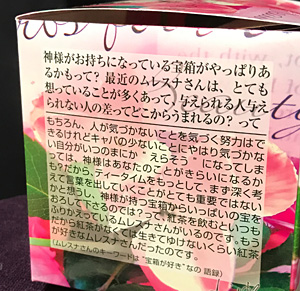 神様がお持ちになっている宝箱がやっぱりあ
るかもって? 最近のムレスナさんは、とても
想っていることが多くあって、与えられる人与え
られない人の差ってどこからうまれるの? って
もちろん、人が気づかないことを気づく努力はで
きるけどキャパの少ないことにやはり気づかな
い自分がいつのまにか “えらそう” になってしま
っては、神様はあなたのことがきらいになるか
も?だから、ティータイムをもっとして、まず深く考
えて言葉を出していくことがとても重要ではない
かと想うし、神様が持つ宝箱からいっぱいの宝を
おろして下さるのではって紅茶を飲むといつも
ふりかえっているムレスナさんがいるのです。もう
だから紅茶がなくては生きてゆけないくらい紅茶
が好きなムレスナさんだったのです。
(ムレスナさんのキーワードは “宝箱が好き”なの 語録)